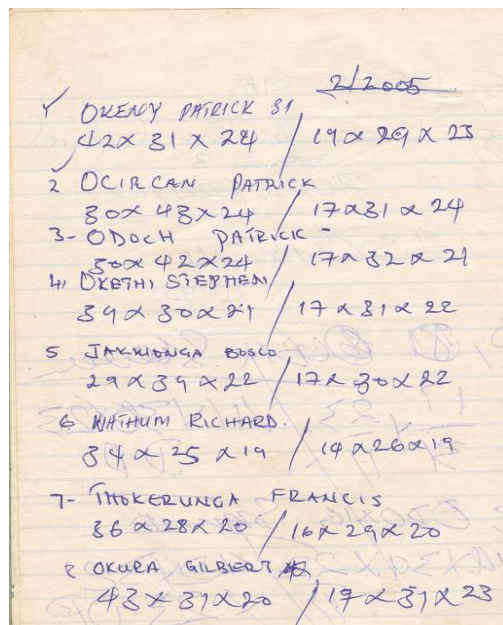 2/2005
1 OKENY PATRICK S1
42 x 31 x 24 / 19 x 29 x 23
2 OCIRCAN PATRICK
30 x 43 x 24 / 17 x 31 x 24
3- ODOCH PATRICK -
30 x 42 x 24 / 17 x 32 x 21
4, OKETHI STEPHEN
39 x 30 x 21 / 17 x 31 x 22
5 BOSCO
29 x 39 x 22 / 17 x 30 x 22
6 WATHUM RICHARD.
34 x 25 x 19 / 14 x 26 x 19
7- THOKERUNGA FRANCIS
36 x 28 x 20 / 16 x 29 x 20
8 OKURA GILBERT
43 x 31 x 20 / 17 x 31 x 23